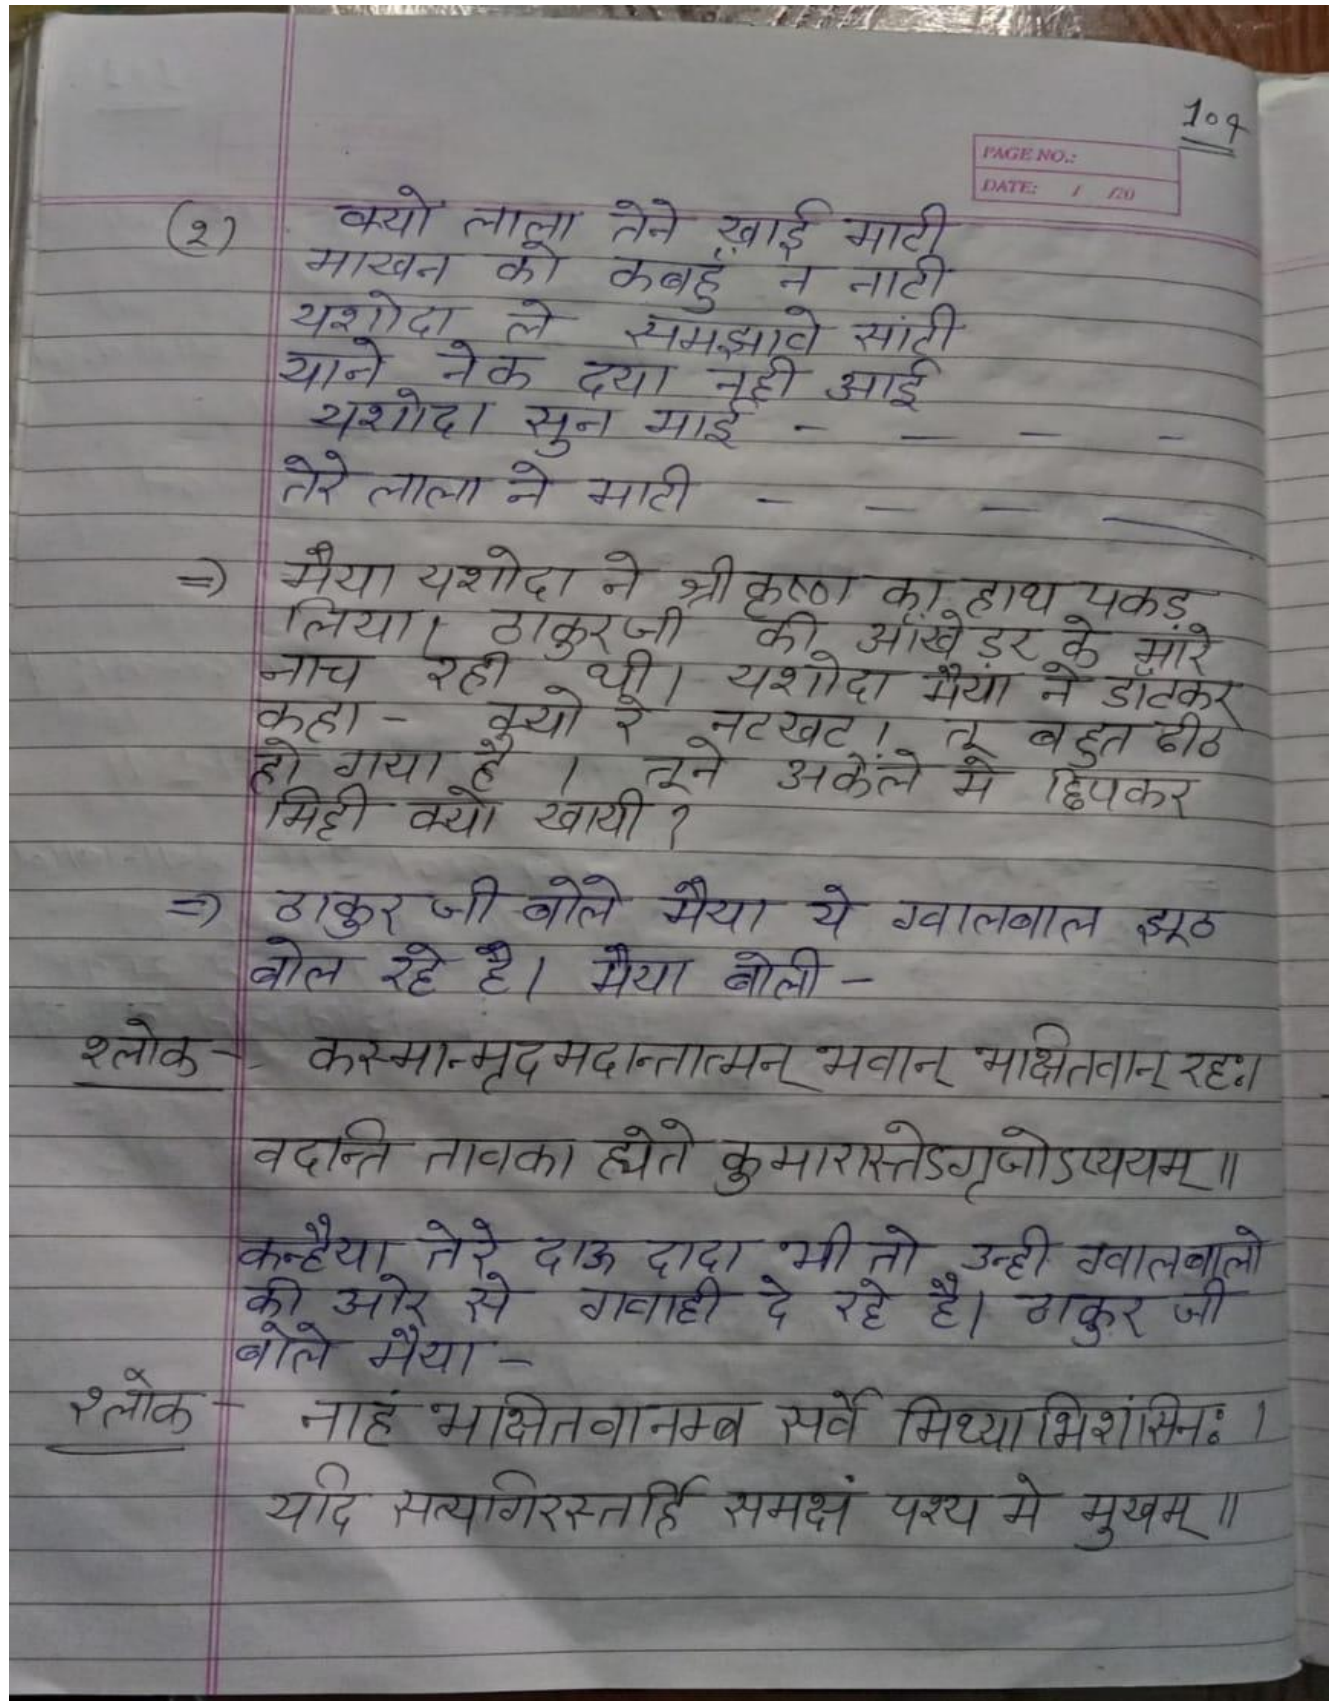 107
PAGE NO.:
DATE: / /20
(२) क्यों लाला तेने खाई माटी
माखन को कबहुं न नाटी
यशोदा ले समझावे सांटी
याने नेक दया नही आई
यशोदा सुन माई - - - -
तेरे लाला ने माटी - - - -
=) मैया यशोदा ने श्री कृष्ण का हाथ पकड़
लिया। ठाकुरजी की आंखे डर के मारे
नाच रही थी। यशोदा मैया ने डाँटकर
कहा - क्यो रे नटखट! तू बहुत ढीठ
हो गया है । तूने अकेले मे छिपकर
मिट्टी क्यो खायी ?
=) ठाकुर जी बोले मैया ये ग्वालबाल झूठ
बोल रहे है। मैया बोली -
श्लोक - कस्मान्मृदमदान्तात्मन् भवान् भक्षितवान् रहः।
वदन्ति तावका ह्येते कुमारास्तेऽगृजोऽप्ययम् ॥
कन्हैया तेरे दाऊ दादा भी तो उन्ही ग्वालबालो
की ओर से गवाही दे रहे है। ठाकुर जी
बोले मैया -
श्लोक - नाहं भक्षितवानम्ब सर्वे मिथ्याभिशंसिनः ।
यदि सत्यगिरस्तर्हि समक्षं पश्य मे मुखम् ॥